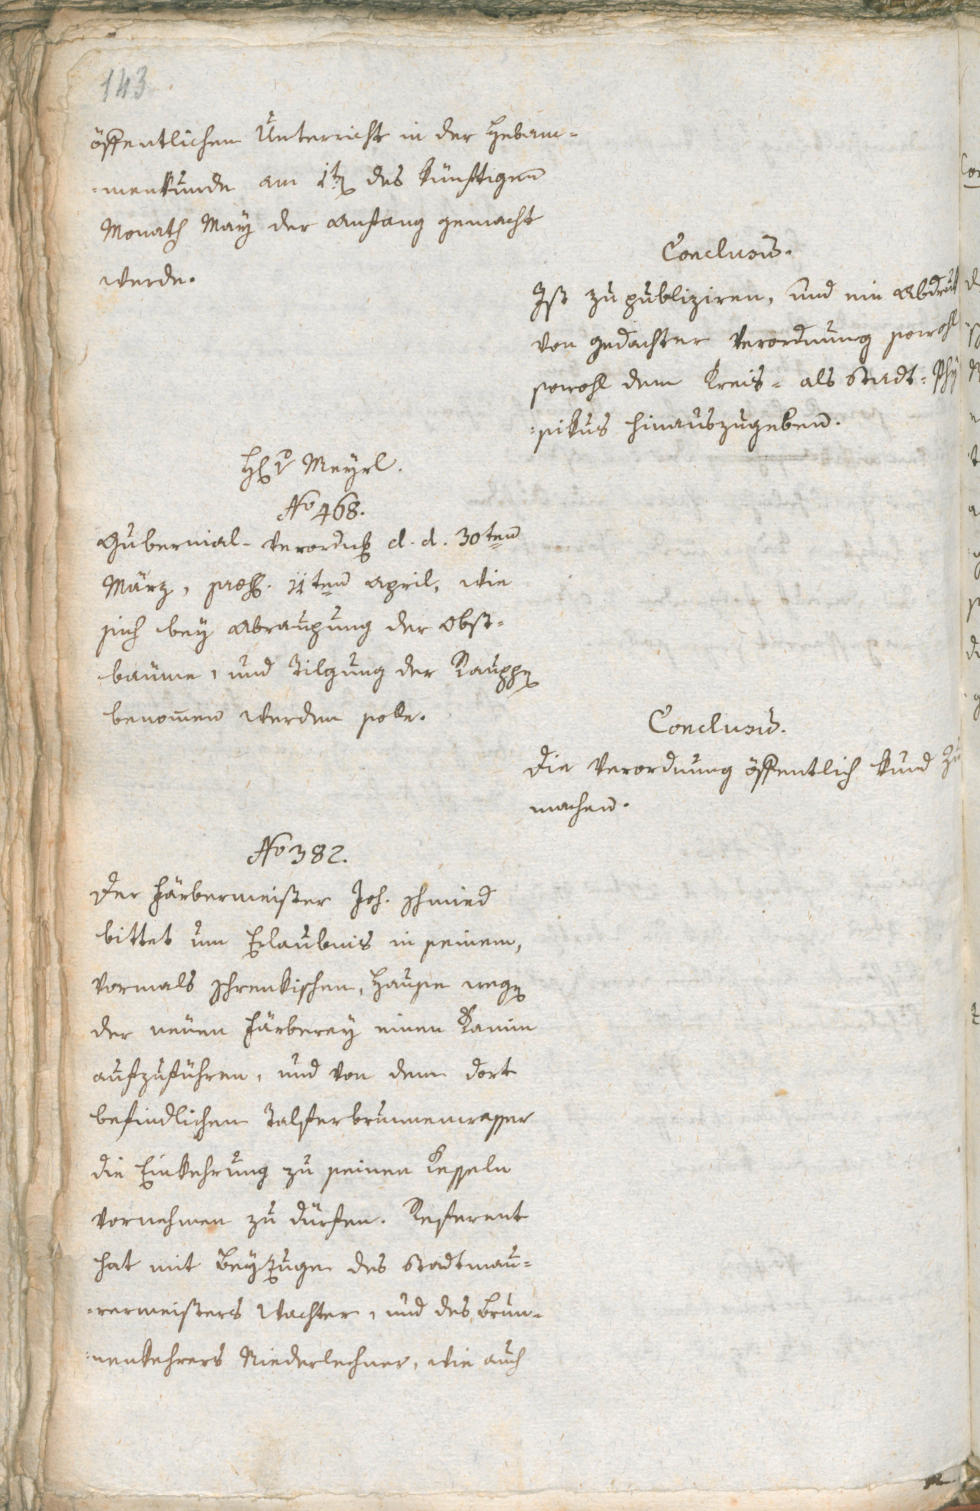 143
öffentlichen Unterricht in der Hebam-
-menkunde am 1t des künftigen
Monath May der Anfang gemacht
werde.
Conclusum.
Ist zu publiziren, und ein Abdruk
von gedachter Verordnung sowohl
sowohl dem Kreis- als Stadt-Phÿ
-sikus hinauszugeben.
H. Meyrl.
No 468.
Gubernial-Verordng d. d. 30ten
März, praes. 11ten April, wie
sich bey Abraupung der Obst-
bäume, und Tilgung der Rauppen
benommen werden solle.
Conclusum.
Die Verordnung öffentlich kund zu
machen.
No 382.
Der Färbermeister Joh. Schmied
bittet um Erlaubnis in seinem,
vormals Schrenkischen, Hause wegen
der neuen Färberey einen Kamin
aufzuführen, und von dem dort
befindlichen Talferbrunnenwasser
die Einkehrung zu seinen Kesseln
vornehmen zu dürfen. Referent
hat mit Beyzuge des Stadtmau-
-rermeisters Wachter, und des Brun-
-nenkehrers Niederlechner, wie auch